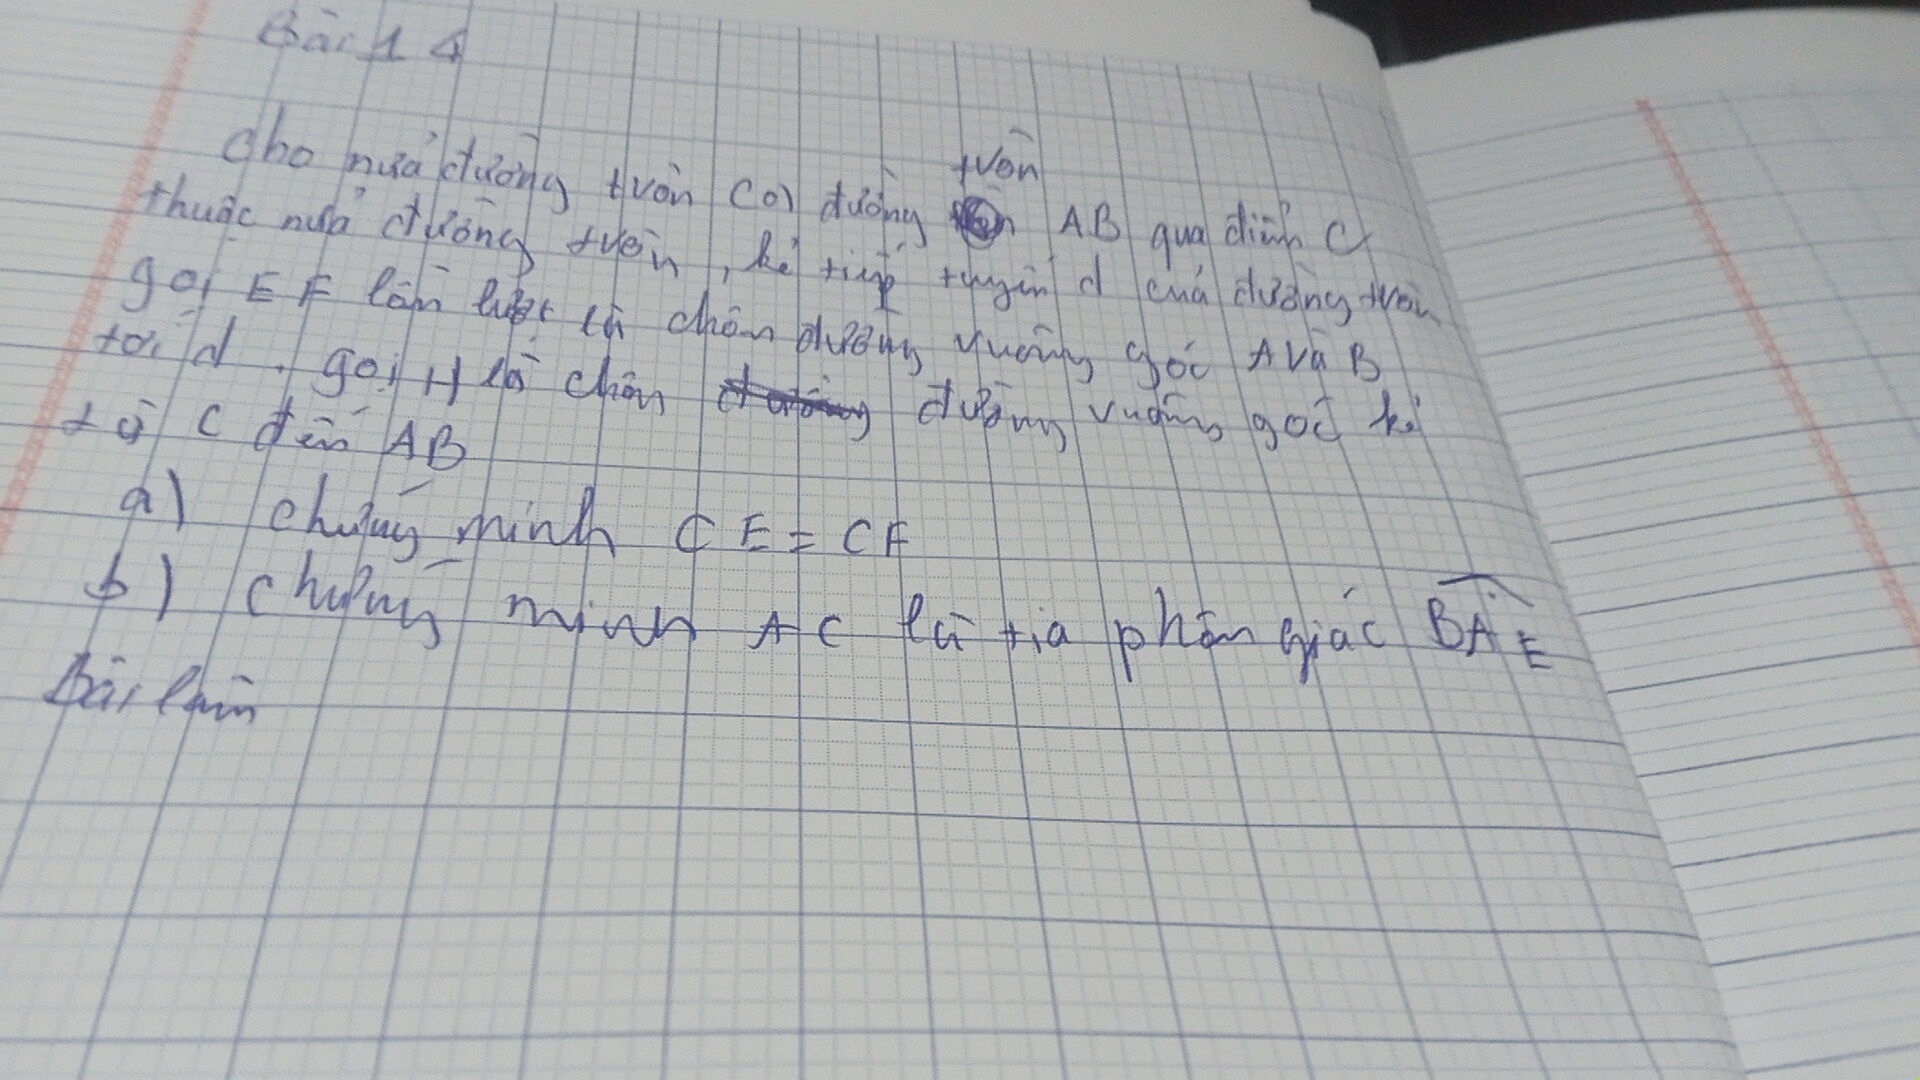 Bài 14
cho nửa đường tròn có đường tròn AB qua điểm C
thuộc nửa đường tròn, kẻ tiếp tuyến d của đường tròn
gọi E F lần lượt là chân đường vuông góc A và B
tới d. gọi H là chân đường vuông góc kẻ
từ C đến AB
a) chứng minh CE = CF
b) chứng minh AC là tia phân giác BAE
Bài làm